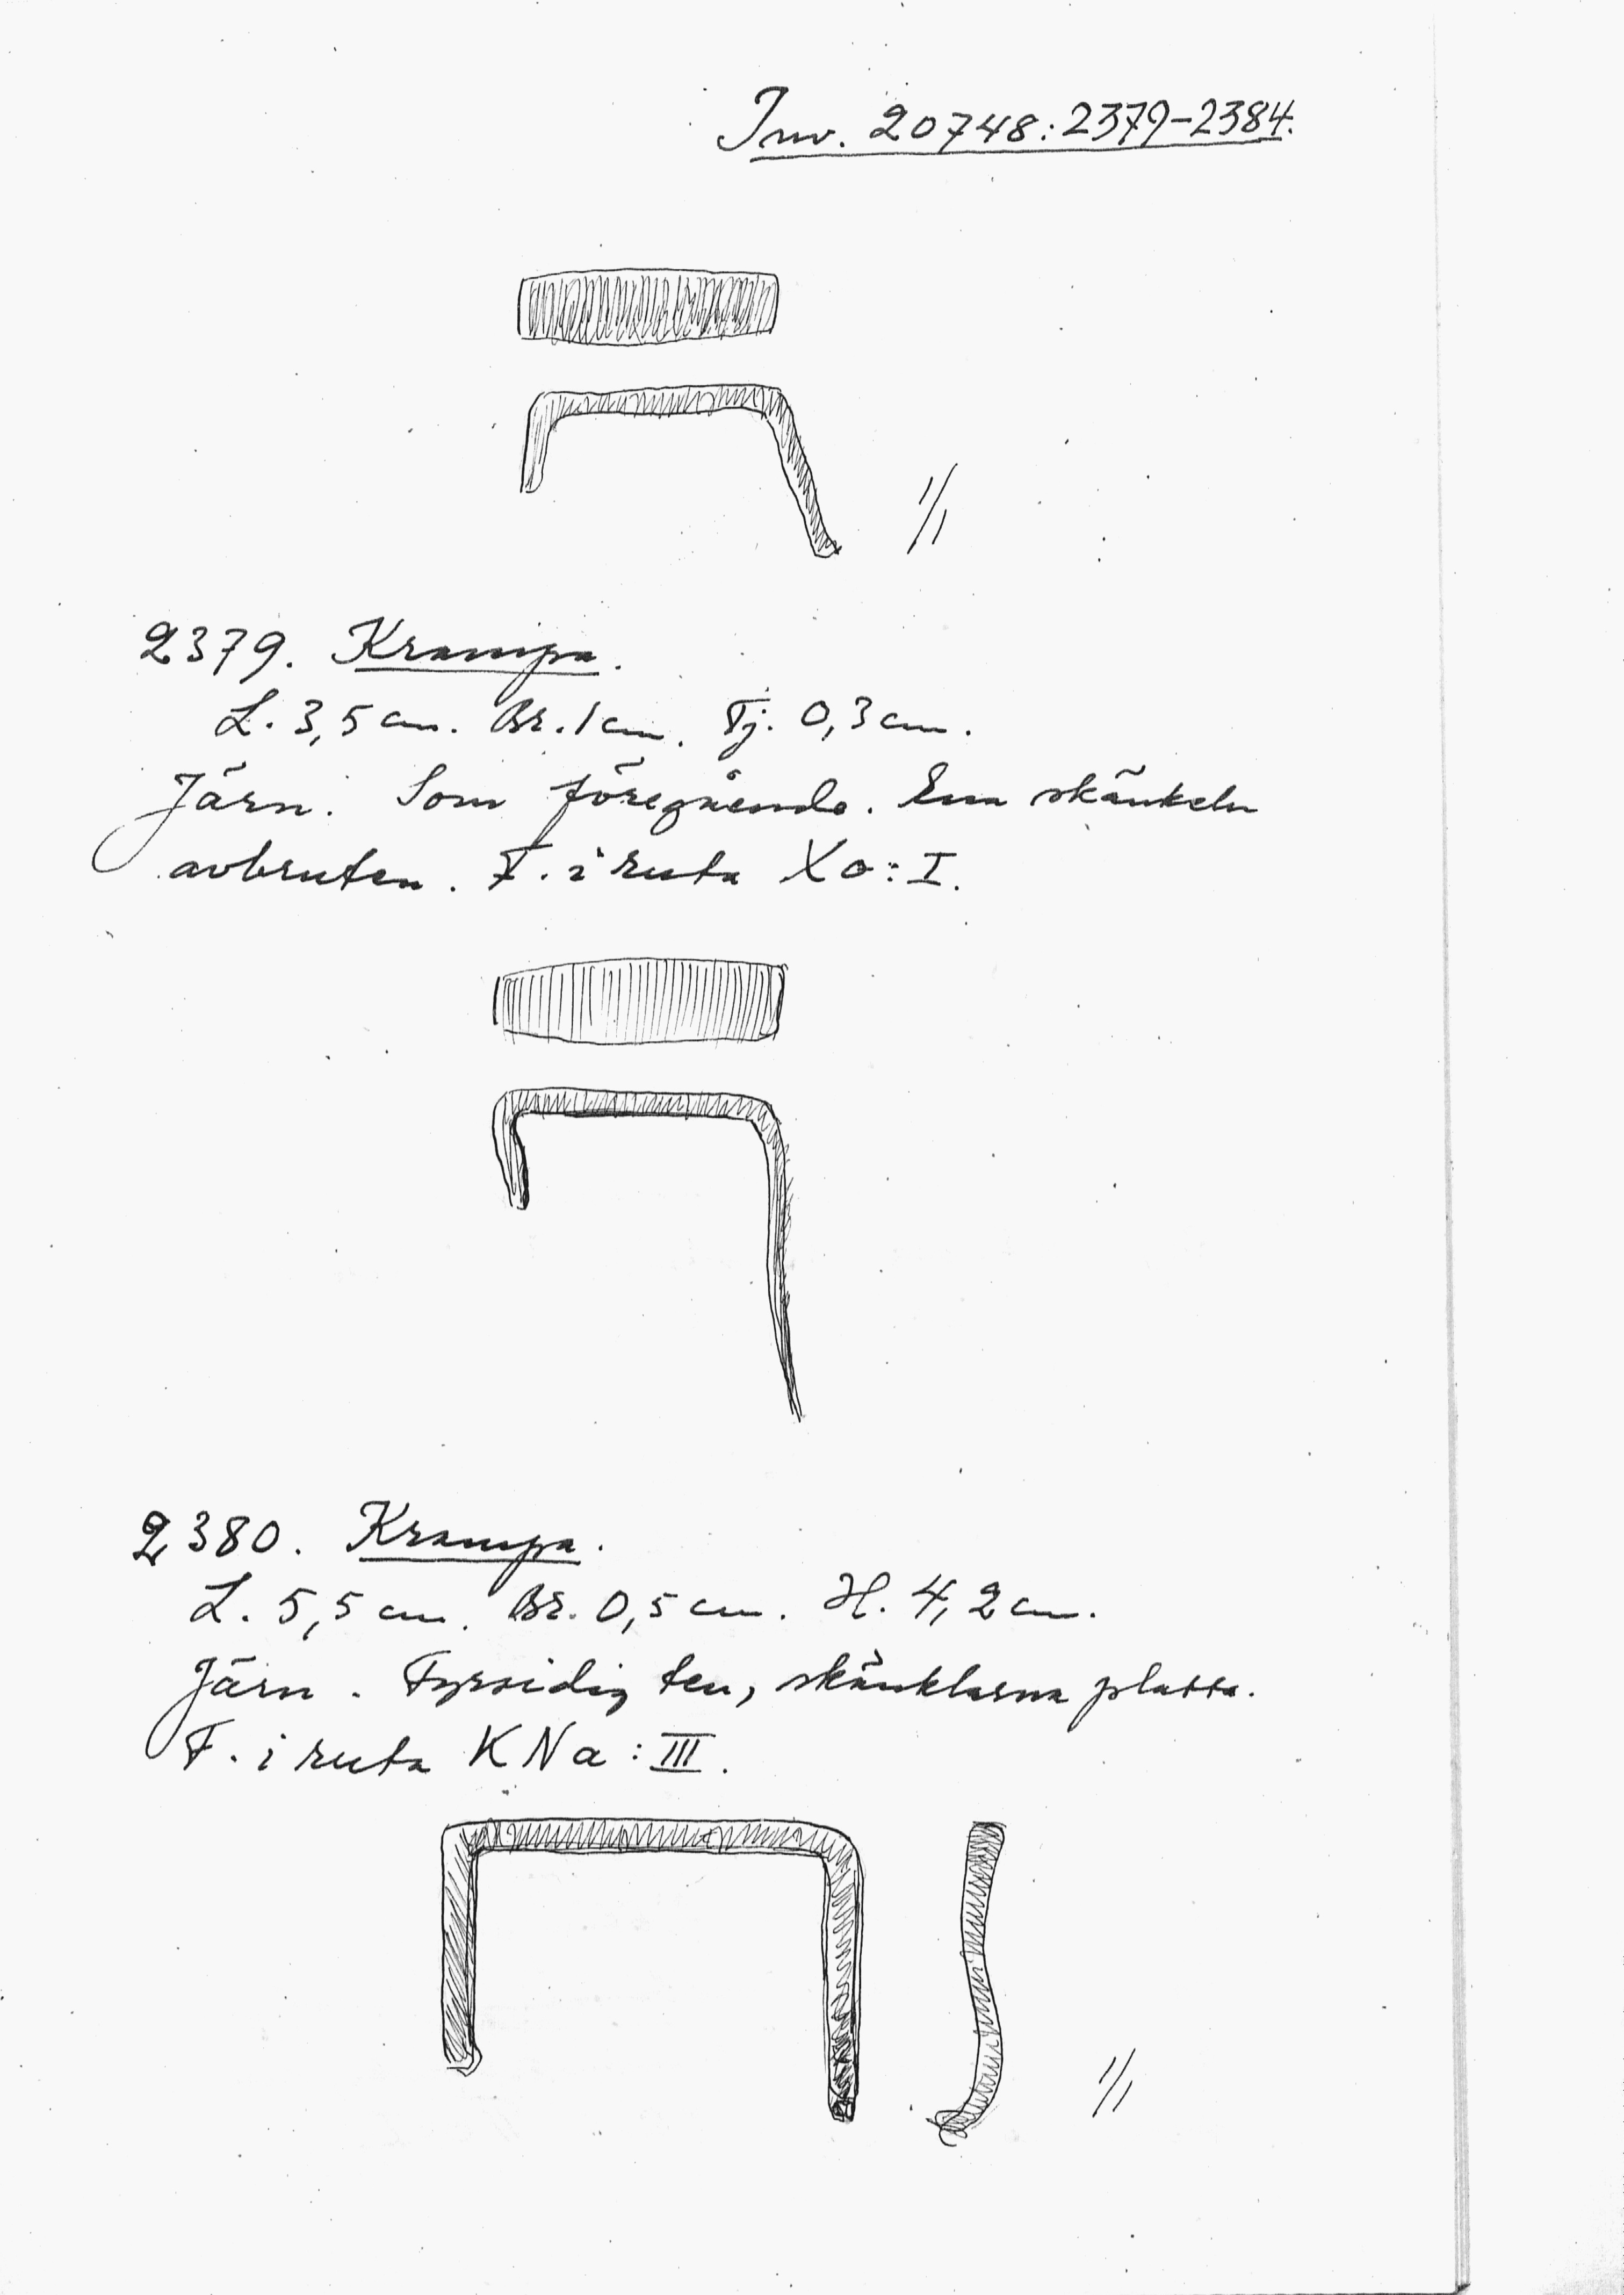 Inv. 20748:2379-2384.
1/1
2379. Krampa.
L. 3,5 cm. Br. 1 cm. Tj. 0,3 cm.
Järn. Som föregående. Ena skänkeln
avbruten. F. i ruta Xo:I.
2380. Krampa.
L. 5,5 cm. Br. 0,5 cm. H. 4,2 cm.
Järn. Fyrsidig ten, skänklarna platta.
F. i ruta KNa:III.
1/1